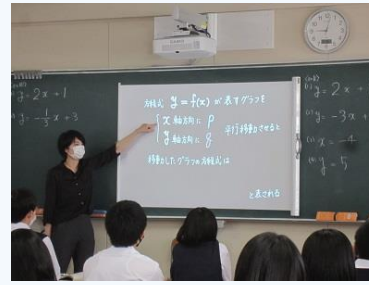 y = 2x + 1
y = -1/3 x + 3
方程式 y = f(x) が表すグラフを
x 軸方向に p
y 軸方向に q
平行移動させると
移動したグラフの方程式は
と表される
y = 2x +
y = -3x +
x = -4
y = 5